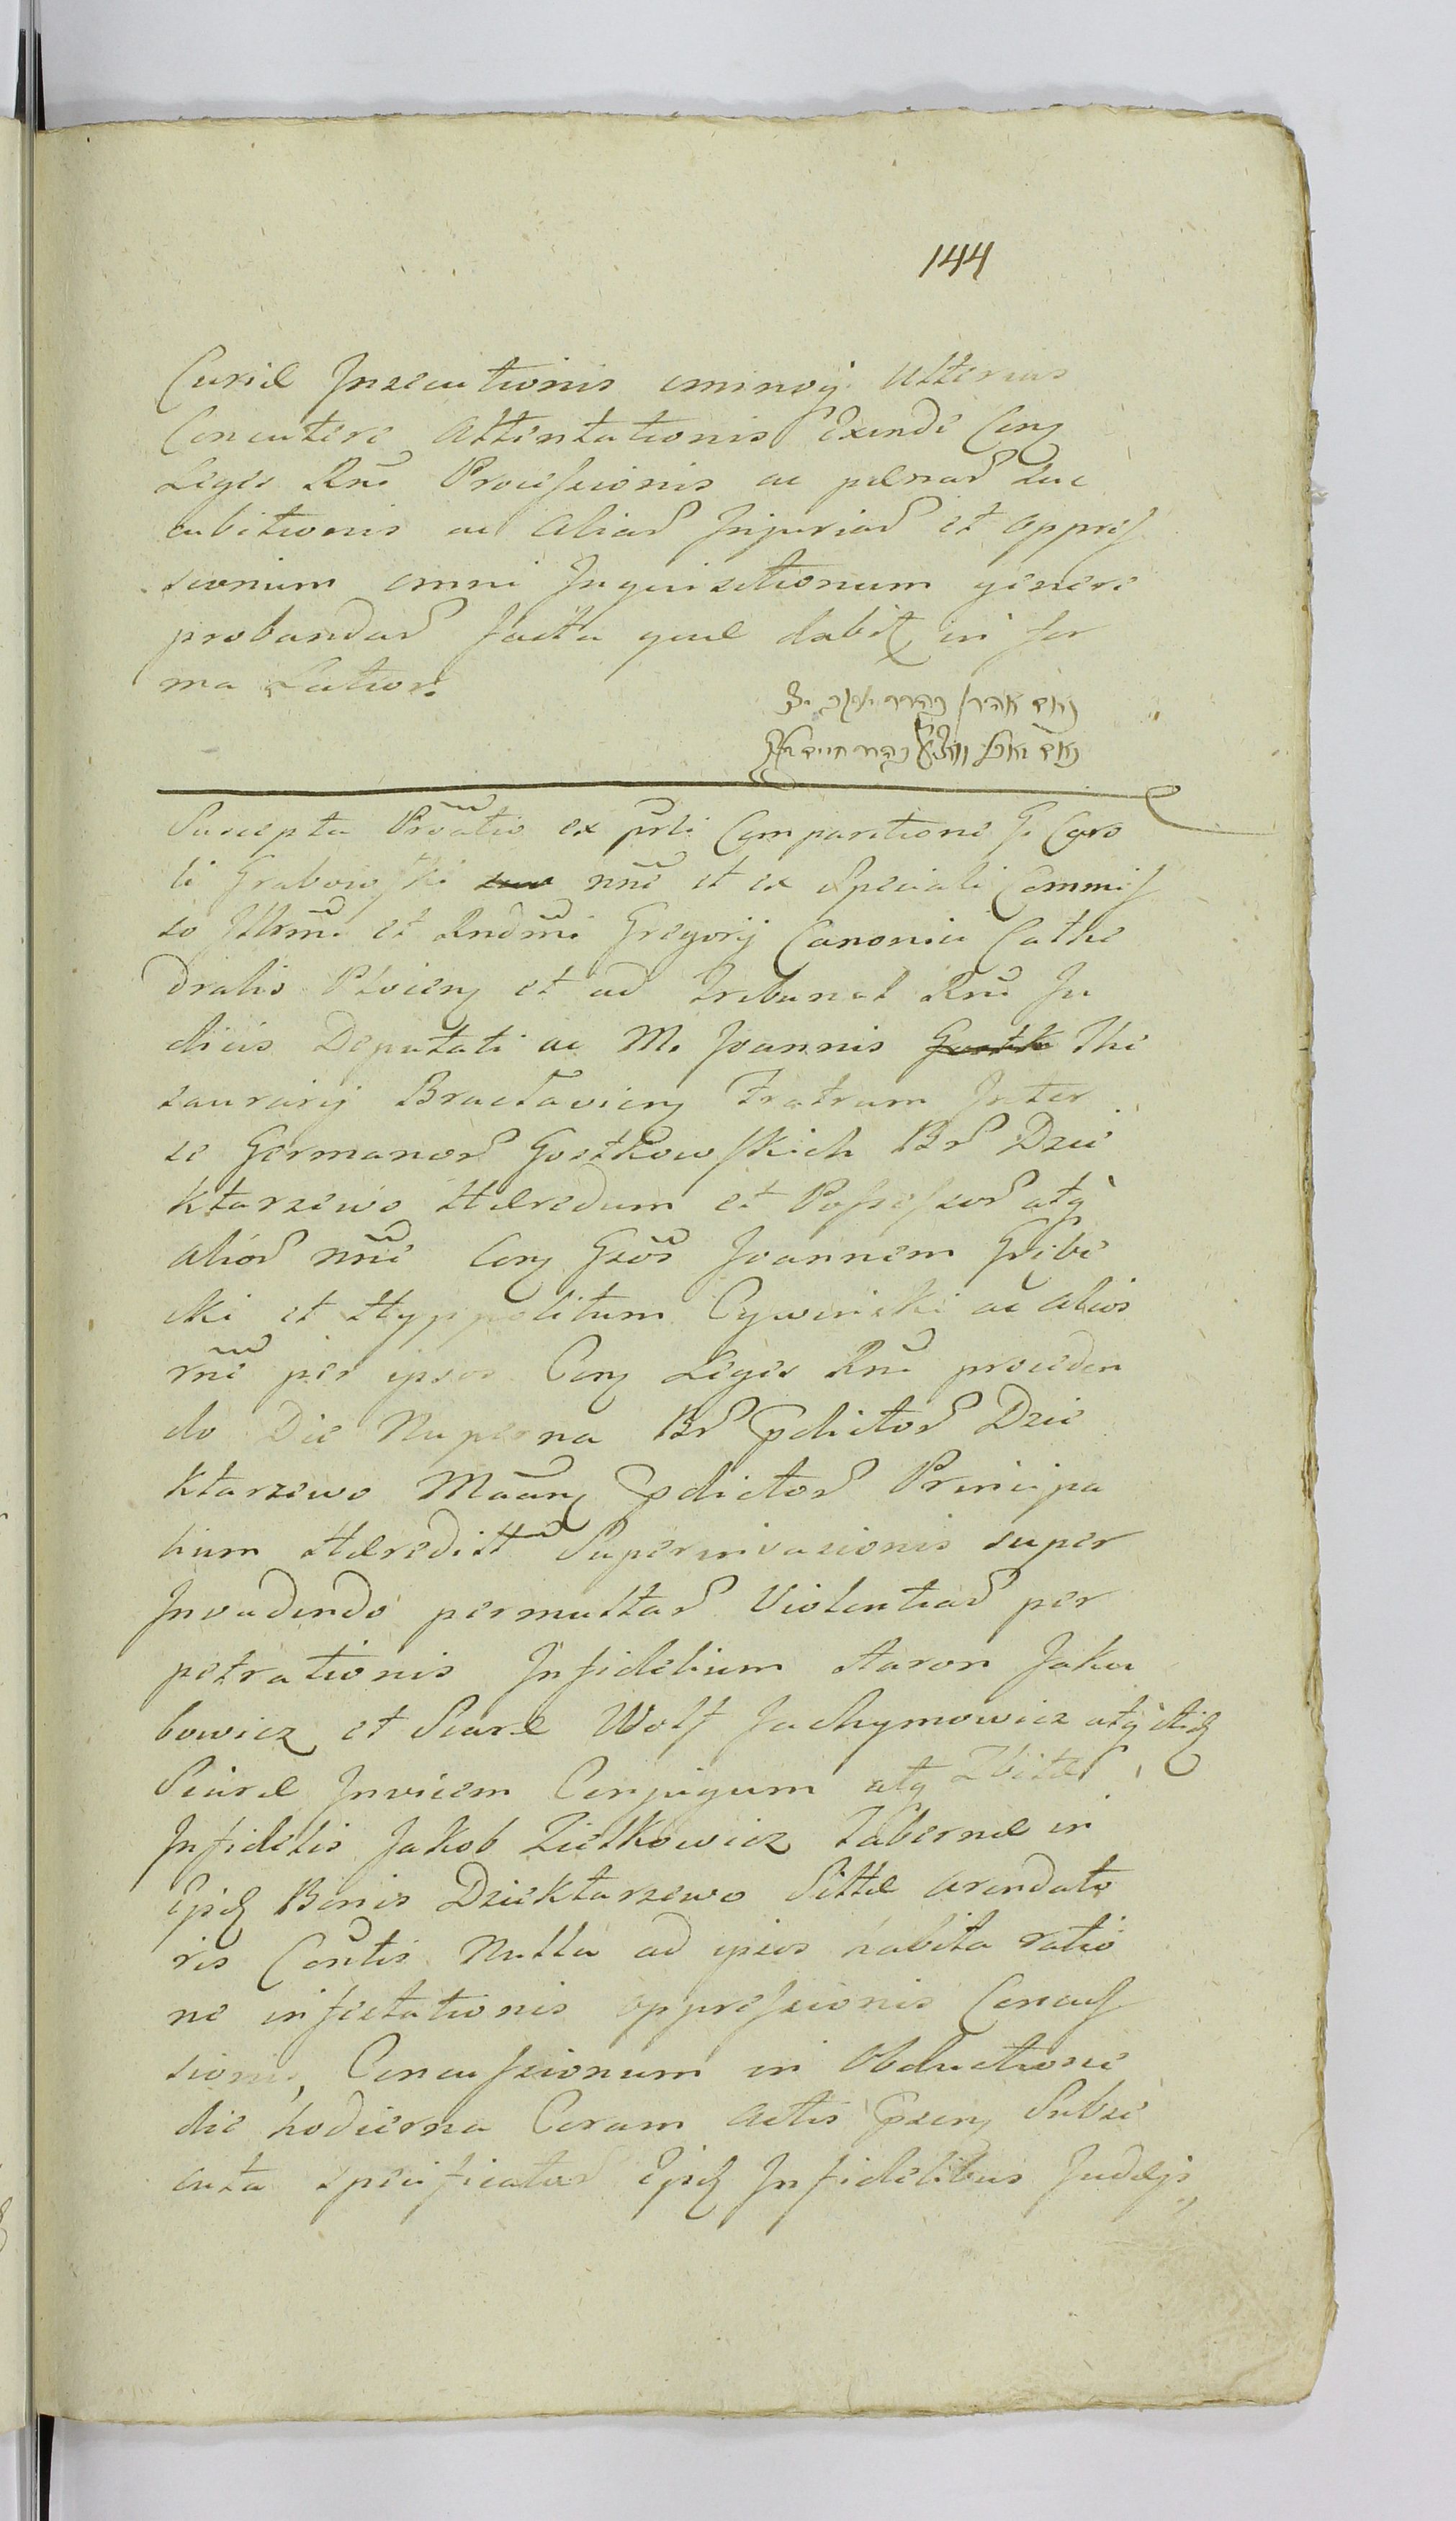 144
Curiæ Insecutionis eminoq ulterius
Concutere attentationis Exinde Con
Leges Rni Processionis ac pænar Suc
cubitionis ac aliar Injuriar et oppres
sionum omni Inquisitionum genere
probandar facta quæ dabit in for
ma Latiori
נאום אהרן
נאום
Suscepta Prottio ex psti Comparitione G. Caro
li Grabowski nne et ex Speciali Commis
so Illrmi et Rndmi Gregorij Canonici Cathe
dralis Płocien et ad Tribunal Rni Ju
dicis Deputati ac M. Joannis Gostk The
saurarij Bracłavien Fratrum Inter
se Germanor Gostkowskich Br Dzie
ktarzewo Hæredum et Possessor atq
alior nne Con Gsos Joannem
ski et Hyppolitum Cywinski ac alios
rne per ipsos Con Leges Rni proceden
do Die Nuperna Br pdictor Dzie
ktarzewo Maan pdictor Principa
lium Hæreditt Superinvasionis super
Invadendo permultar Violentiar per
petrationis Infidelium Aaron Jaku
bowicz et Siaræ Wolf Jachymowicz atq
Siaræ Invicem Conjugum atq
Infidelis Jakob Ziełkowicz Tabernæ in
Ejsd Bonis Dziektarzewo Sittæ arendato
ris Contis Nulla ad ipsos habita ratio
ne insectationis oppressionis Concus
sionis, Concussionum in Obductione
die hodierna Coram actis psen Subse
cuta specificatar Ejsd Infidelibus Judæis